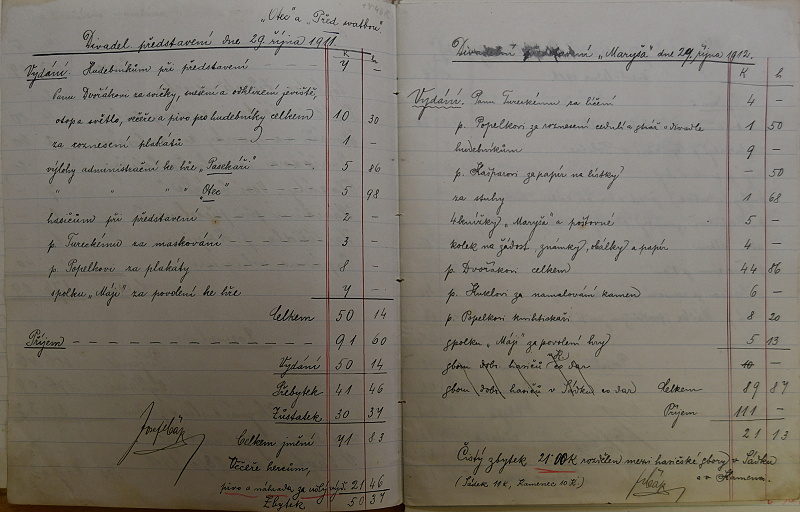 „Otec" a „Před svatbou"
Divadel. představení dne 29. října 1911
K h
Vydání: Hudebníkům při představení 4 –
Panu Dvořákovi za svíčky, snešení a odklizení jeviště,
otop a světlo, večeře a pivo pro hudebníky celkem 10 30
za roznesení plakátů 1 –
výlohy administrační ke hře „Pasekáři" 5 86
" " " " „Otec" 5 98
hasičům při představení 2 –
p. Tureckému za maskování 3 –
p. Popelkovi za plakáty 8 –
spolku „Máj" za povolení ke hře 4 –
Celkem 50 14
Příjem 91 60
Vydání 50 14
Přebytek 41 46
Zůstatek 30 37
Celkem jmění 71 83
Večeře hercům,
pivo a náhrada za 21 46
Zbytek 50 37
Divadelní představení „Maryša" dne 29. října 1912.
K h
Vydání: Panu Tureckému za líčení 4 –
p. Popelkovi za roznesení cedulí a v divadle 1 50
hudebníkům 9 –
p. Kašparovi za papír na lístky – 50
za stuhy 1 68
4 knížky „Maryša" a poštovné 5 –
kolek na žádost, známky, obálky a papír 4 –
p. Dvořákovi celkem 44 86
p. za namalování kamen 6 –
p. Popelkovi knihtiskaři 8 20
spolku „Máj" za povolení hry 5 13
sboru dobr. hasičů co dar 10 –
sboru dobr. hasičů v Sádku co dar Celkem 89 87
Příjem 111 –
21 13
Čistý zbytek 21·00 K rozdělen mezi hasičské sbory v Sádku
(Sádek 11 K, Kamenec 10 K) a v Kamenci.